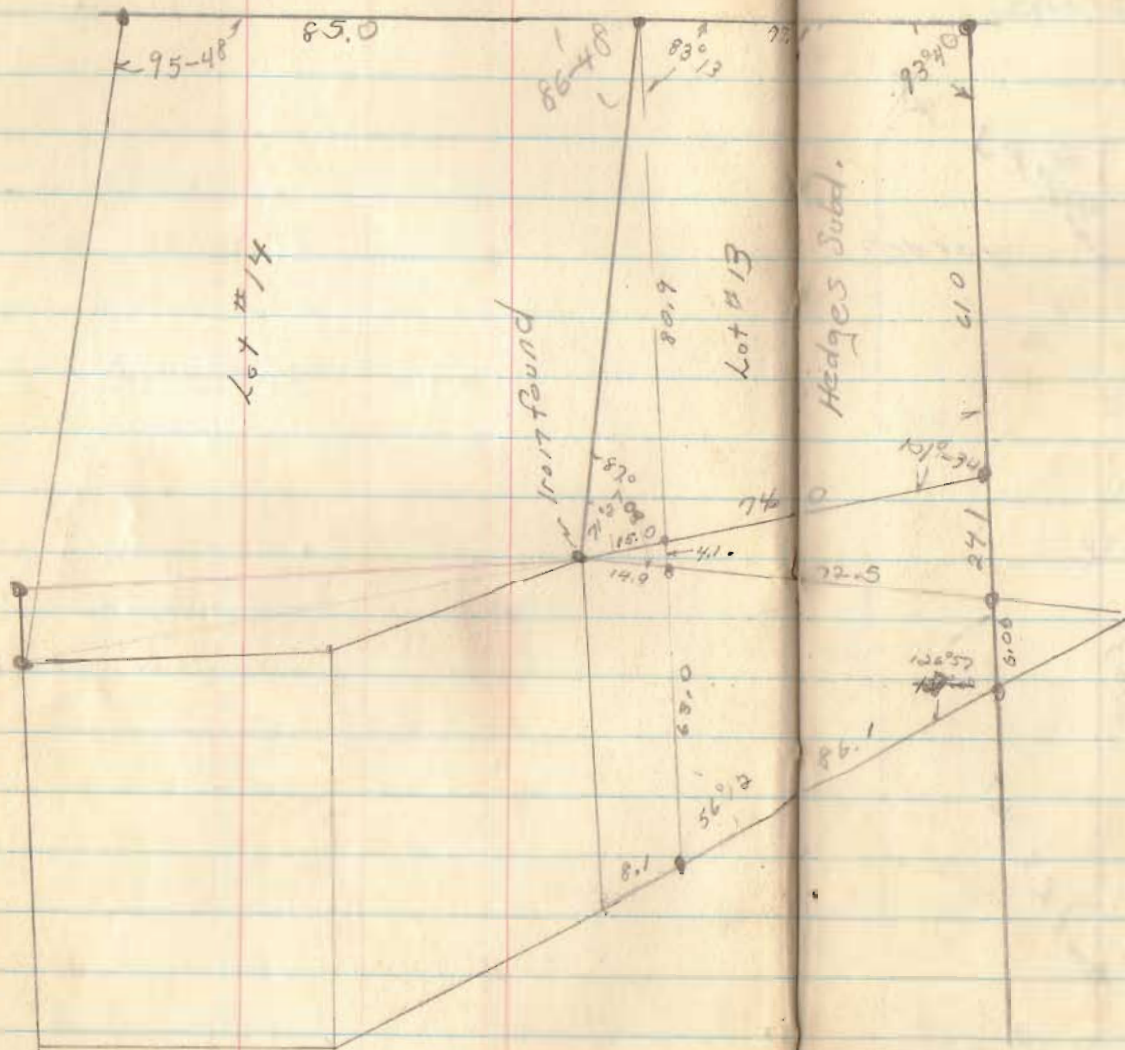 85.0
95-48
86-48
83°13
93°40
Lot #14
Iron found
80.9
Lot #13
Hedges Subd.
61.0
87°
15.0
74.0
4.1
14.9
72.5
24.1
6.00
120°57
63.0
86.1
56°12
8.1